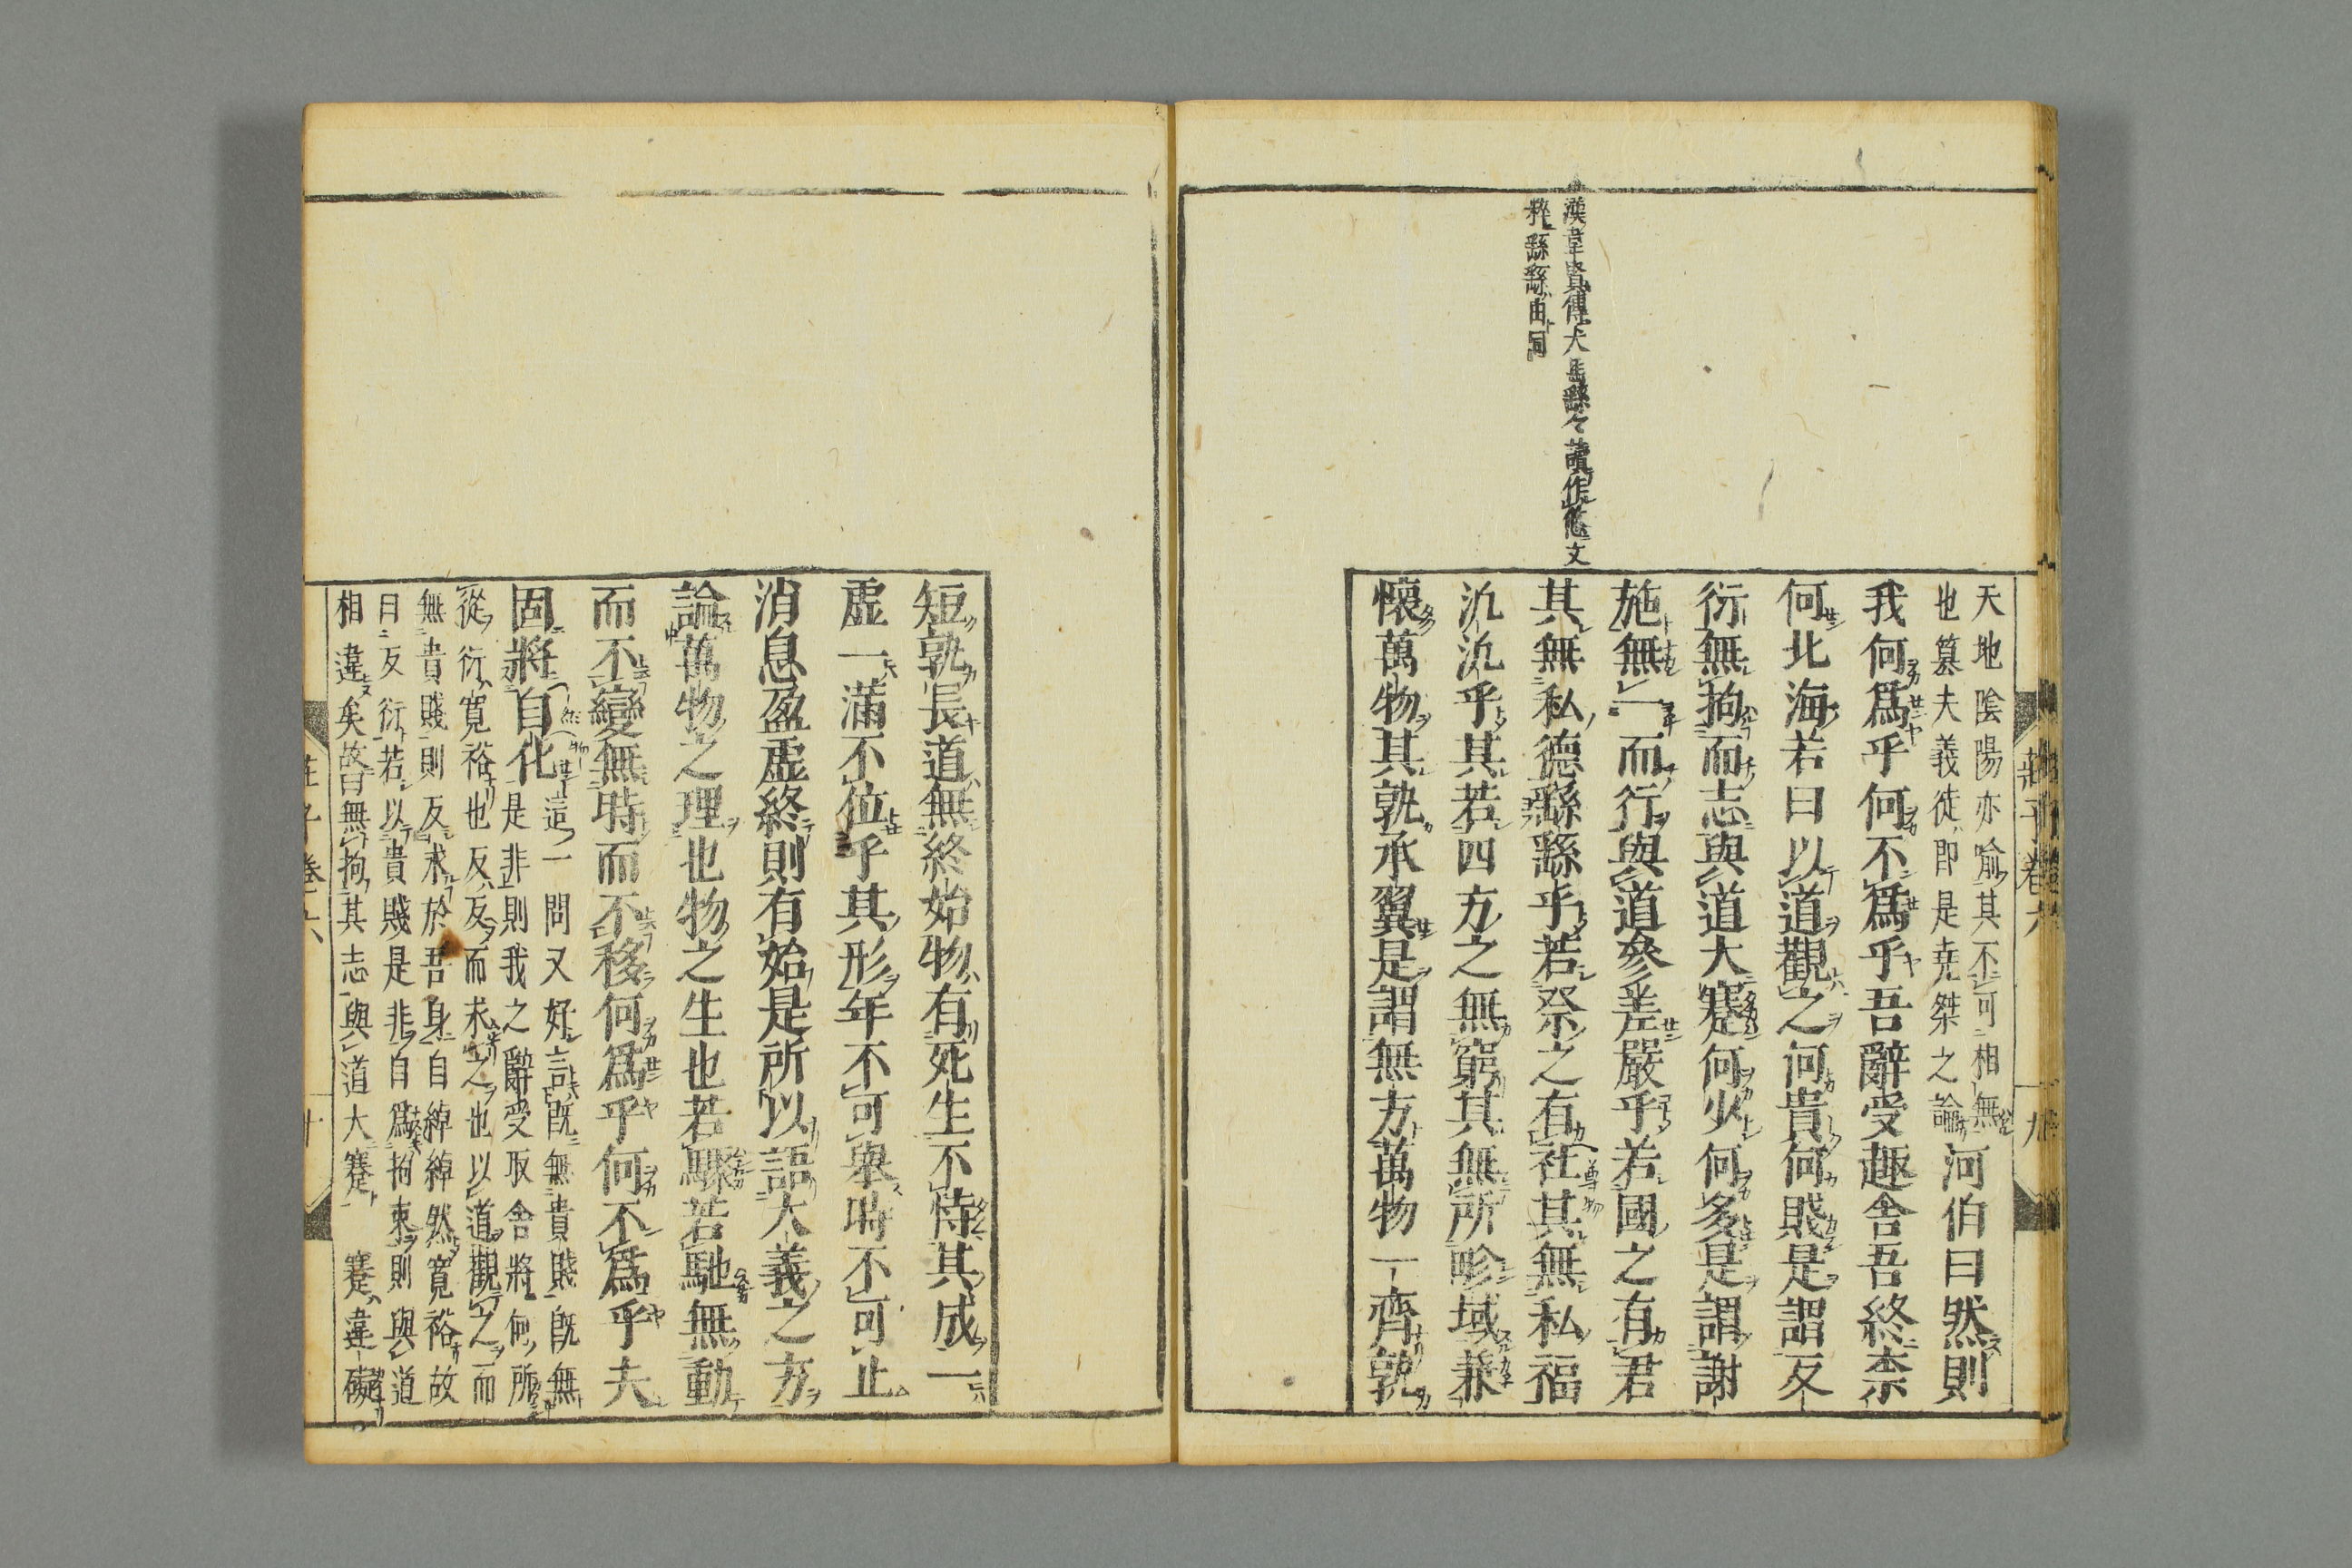 天地陰陽亦喻其不可相無
也篡夫義徒即是堯桀之論
河伯曰然則
我何爲乎何不爲乎吾辭受趣舎吾終柰
何北海若曰以道觀之何貴何賤是謂反
衍無拘而志與道大蹇何少何多是謂謝
施無一而行與道參差嚴乎若國之有君
其無私德繇繇乎若祭之有社其無私福
氿氿乎其若四方之無窮其無所畛域兼
懷萬物其孰承翼是謂無方萬物一齊孰
漢韋賢傳犬馬繇々讀作悠文
粹繇繇由同
莊子卷六
九
短孰長道無終始物有死生不恃其成一
虛一滿不位乎其形年不可舉時不可止
消息盈虛終則有始是所以語大義之方
論萬物之理也物之生也若驟若馳無動
而不變無時而不移何爲乎何不爲乎夫
固將自化
這一問又好言既無貴賤既無
是非則我之辭受取舎將何所
從衍寬裕也反反而求之也以道觀之而
無貴賤則反求於吾身自綽綽然寬裕故
曰反衍若以貴賤是非自爲拘束則與道
相違矣故曰無拘其志與道大蹇 蹇違礙
莊子卷六
十